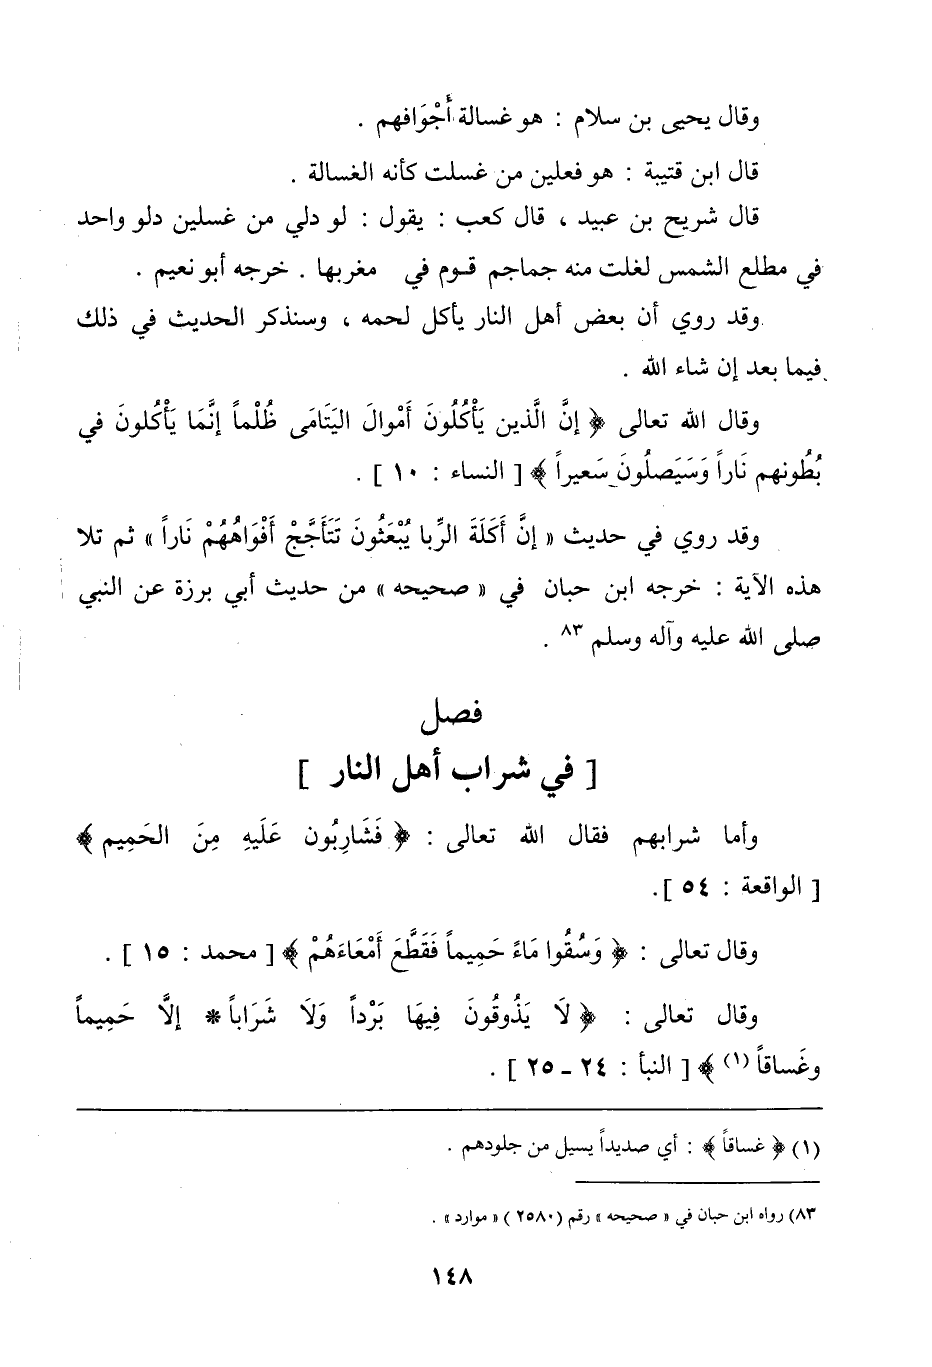 وقال يحيى بن سلام : هو غسالة أَجْوَافهم .
قال ابن قتيبة : هو فعلين من غسلت كأنه الغسالة .
قال شريح بن عبيد ، قال كعب : يقول : لو دلي من غسلين دلو واحد
في مطلع الشمس لغلت منه جماجم قوم في مغربها . خرجه أبو نعيم .
وقد روي أن بعض أهل النار يأكل لحمه ، وسنذكر الحديث في ذلك
فيما بعد إن شاء الله .
وقال الله تعالى ﴿ إنَّ الَّذين يَأْكُلُونَ أَمْوالَ اليَتَامَى ظُلْماً إنَّمَا يَأْكُلونَ في
بُطُونهم نَاراً وَسَيَصلُونَ سَعيراً ﴾ [ النساء : ١٠ ] .
وقد روي في حديث « إنَّ أَكَلَةَ الرِّبا يُبْعَثُونَ تَتَأَجَّجْ أَفْوَاهُهُمْ نَاراً » ثم تلا
هذه الآية : خرجه ابن حبان في « صحيحه » من حديث أبي برزة عن النبي
صلى الله عليه وآله وسلم ٨٣ .
فصل
[ في شراب أهل النار ]
وأما شرابهم فقال الله تعالى : ﴿ فَشَارِبُون عَلَيهِ مِنَ الحَمِيم ﴾
[ الواقعة : ٥٤ ].
وقال تعالى : ﴿ وَسُقُوا مَاءً حَمِيماً فَقَطَّعَ أَمْعَاءَهُمْ ﴾ [ محمد : ١٥ ] .
وقال تعالى : ﴿ لَا يَذُوقُونَ فِيهَا بَرْداً وَلَا شَرَاباً * إلَّا حَمِيماً
وغَساقاً (١) ﴾ [ النبأ : ٢٤ ـ ٢٥ ] .
(١) ﴿ غساقاً ﴾ : أي صديداً يسيل من جلودهم .
٨٣) رواه ابن حبان في « صحيحه » رقم (٢٥٨٠ ) « موارد » .
١٤٨